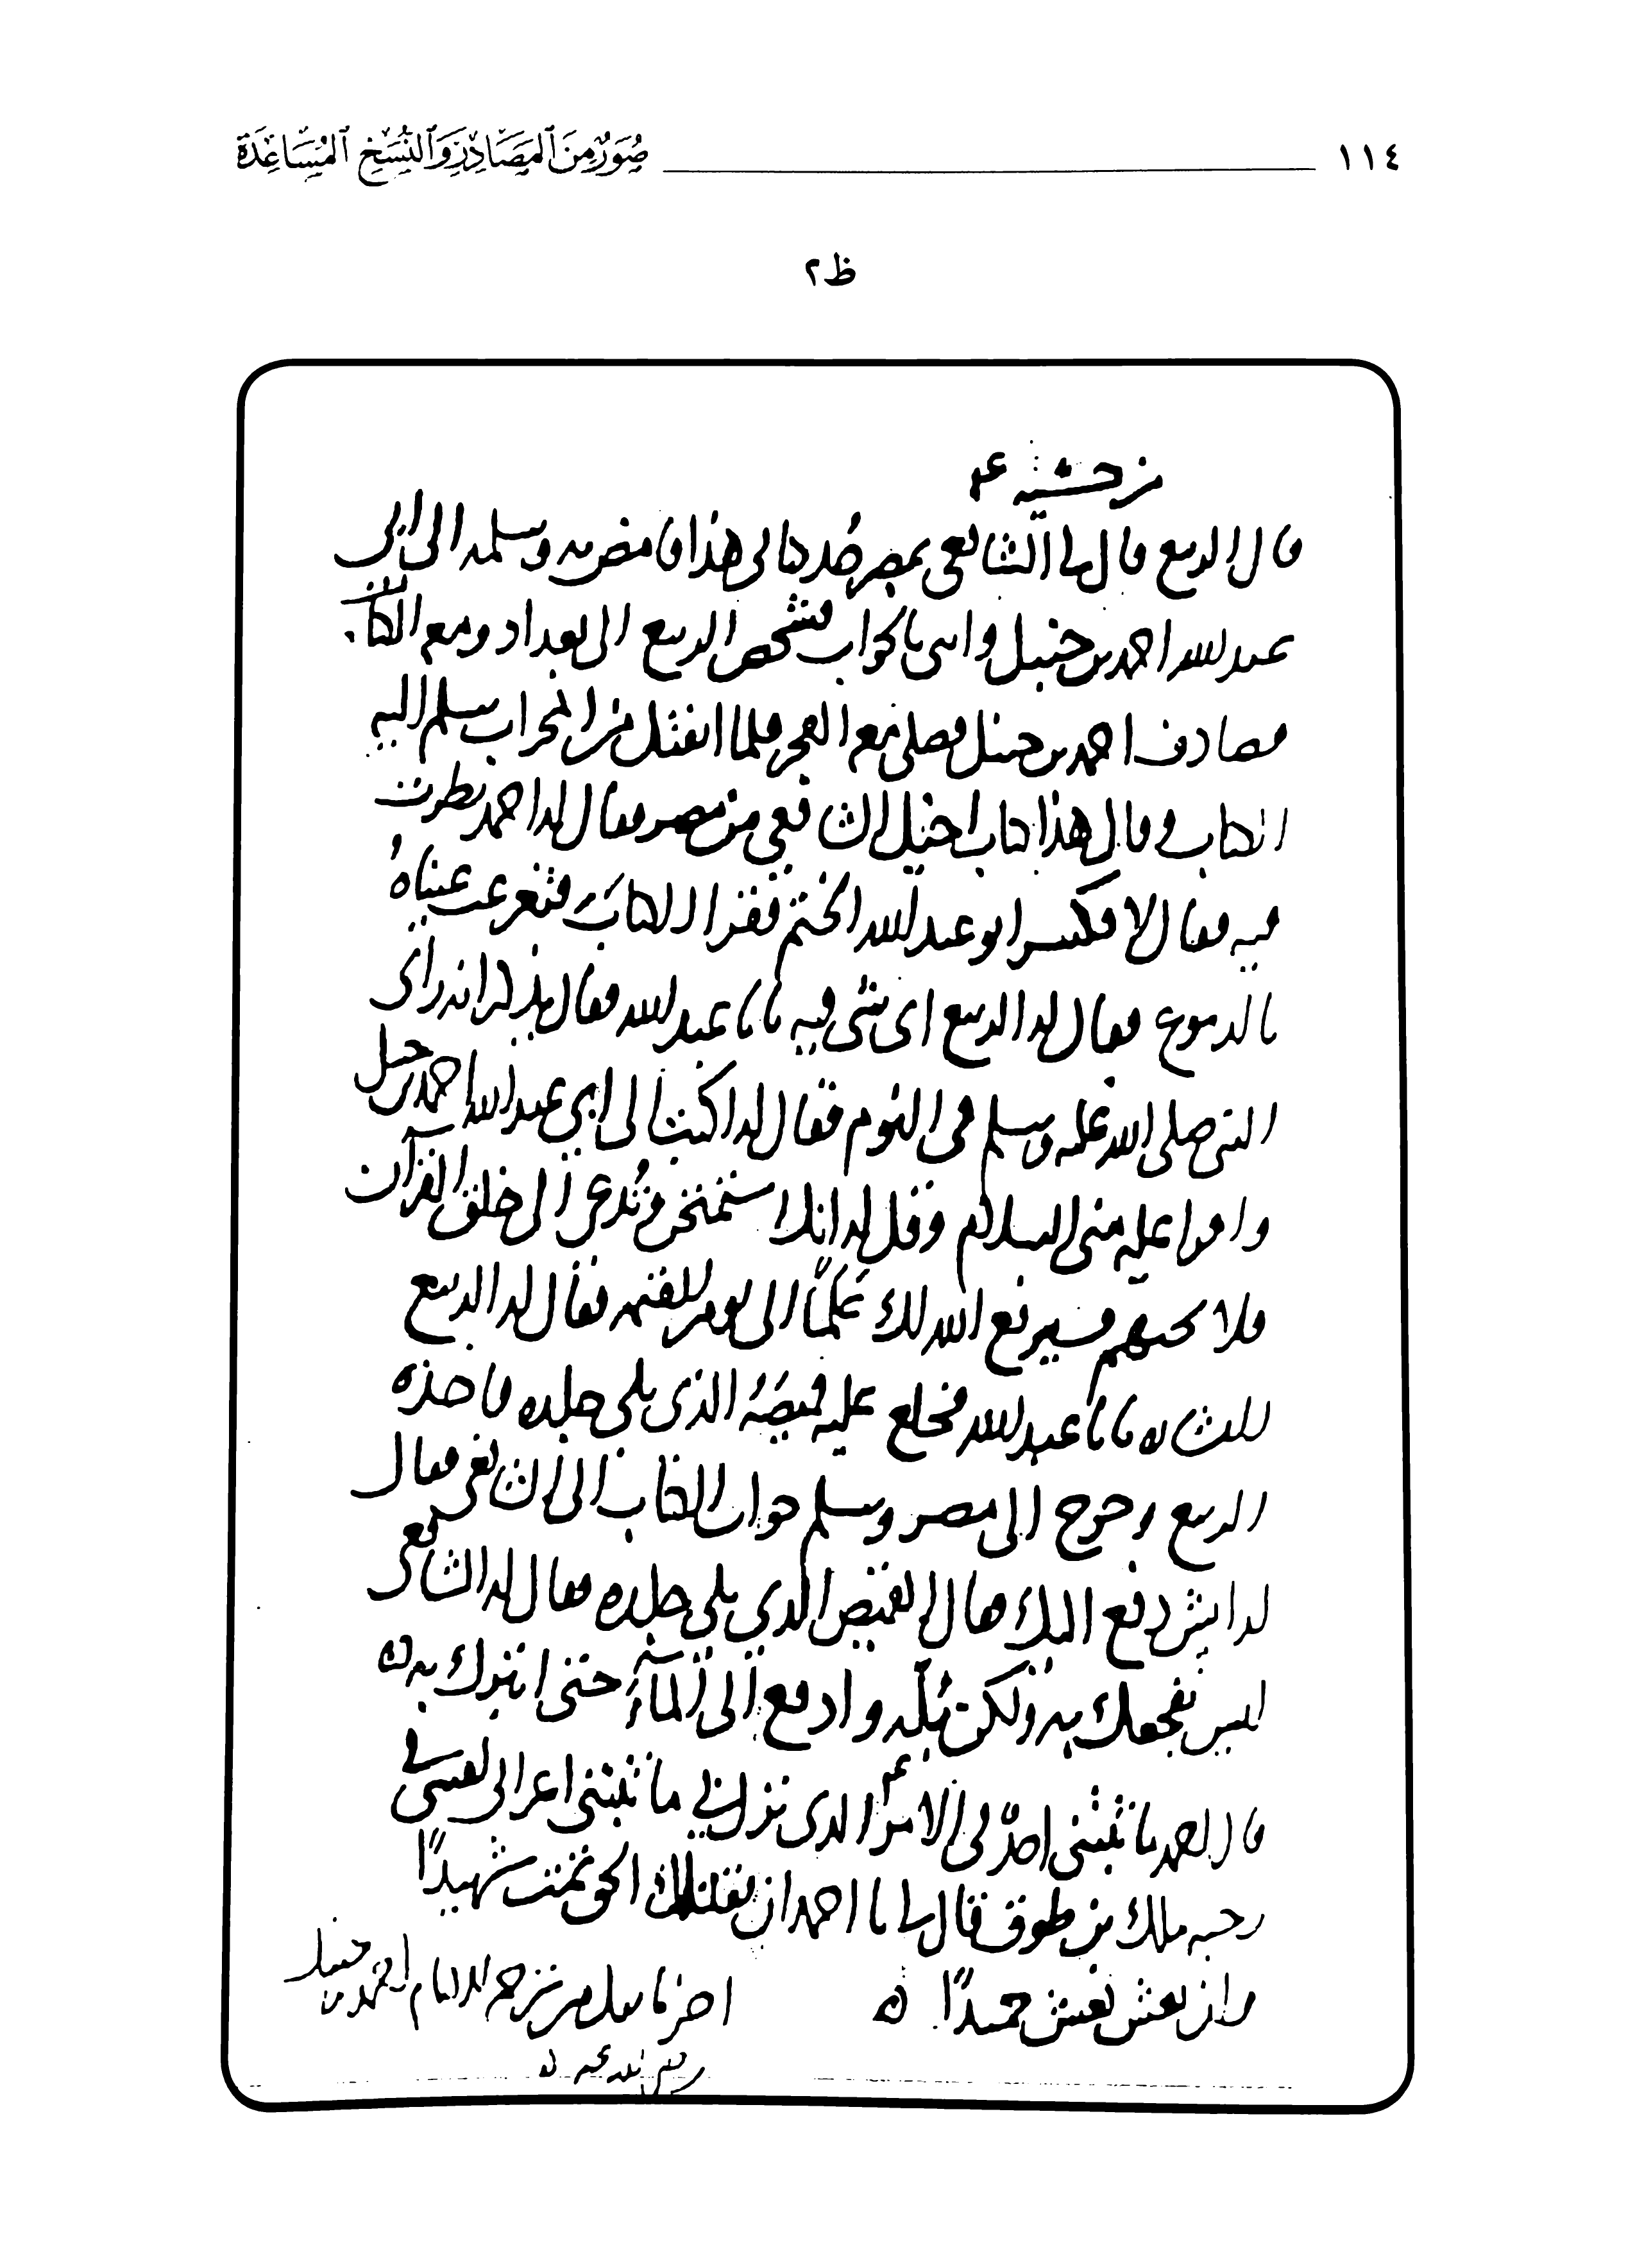 ١١٤ صُوَرٌ مِنَ ٱلمَصَادِرِ وَٱلنُّسَخِ ٱلمُسَاعِدَةِ
ظ٢
من خشيته
قال الربيع قال لي الشافعي بمصر خذ كتابي هذا فامض به وسلمه الى ابي
عبد الله احمد بن حنبل واتني بالجواب فشخص الربيع الى بغداد ومعه الكتاب
فصادف احمد بن حنبل فصلى معه الفجر فلما انفتل من المحراب سلم اليه
الكتاب وقال هذا كتاب اخيك الشافعي من مصر فقال له احمد نظرت
فيه فقال لا فكسر ابو عبد الله الختم فقرا الكتاب فتغرغرت عيناه
بالدموع فقال له الربيع اي شي فيه يابا عبد الله فقال يذكر انه راى
النبي صلى الله عليه وسلم في النوم فقال له اكتب الى ابي عبد الله احمد بن حنبل
واقرا عليه مني السلام وقل له انك ستمتحن وتدعى الى خلق القرآن
فلا تجبهم فسيرفع الله لك علماً الى يوم القيمه فقال له الربيع
البشاره يابا عبد الله فخلع عليه قميصه الذي يلي جلده فاخذه
الربيع وخرج الى مصر وسلم جواب الكتاب الى الشافعي فقال
له ايش دفع اليك قال القميص الذي يلي جلده فقال له الشافعي
ليس نفجعك به ولكن بُلّه وادفع الى الماء حتى اتبرك به
قال احمد ما ثبتني احدٌ في الامر الذي نزل بي ما ثبتني اعرابي لقيني في
رحبه ملك بن طوق قال لي يا احمد ان يقتلك الحق تمت شهيداً
وان تعش تعش حميداً ه اخر ترجمه الامام احمد بن حنبل
رضي الله عنه ه